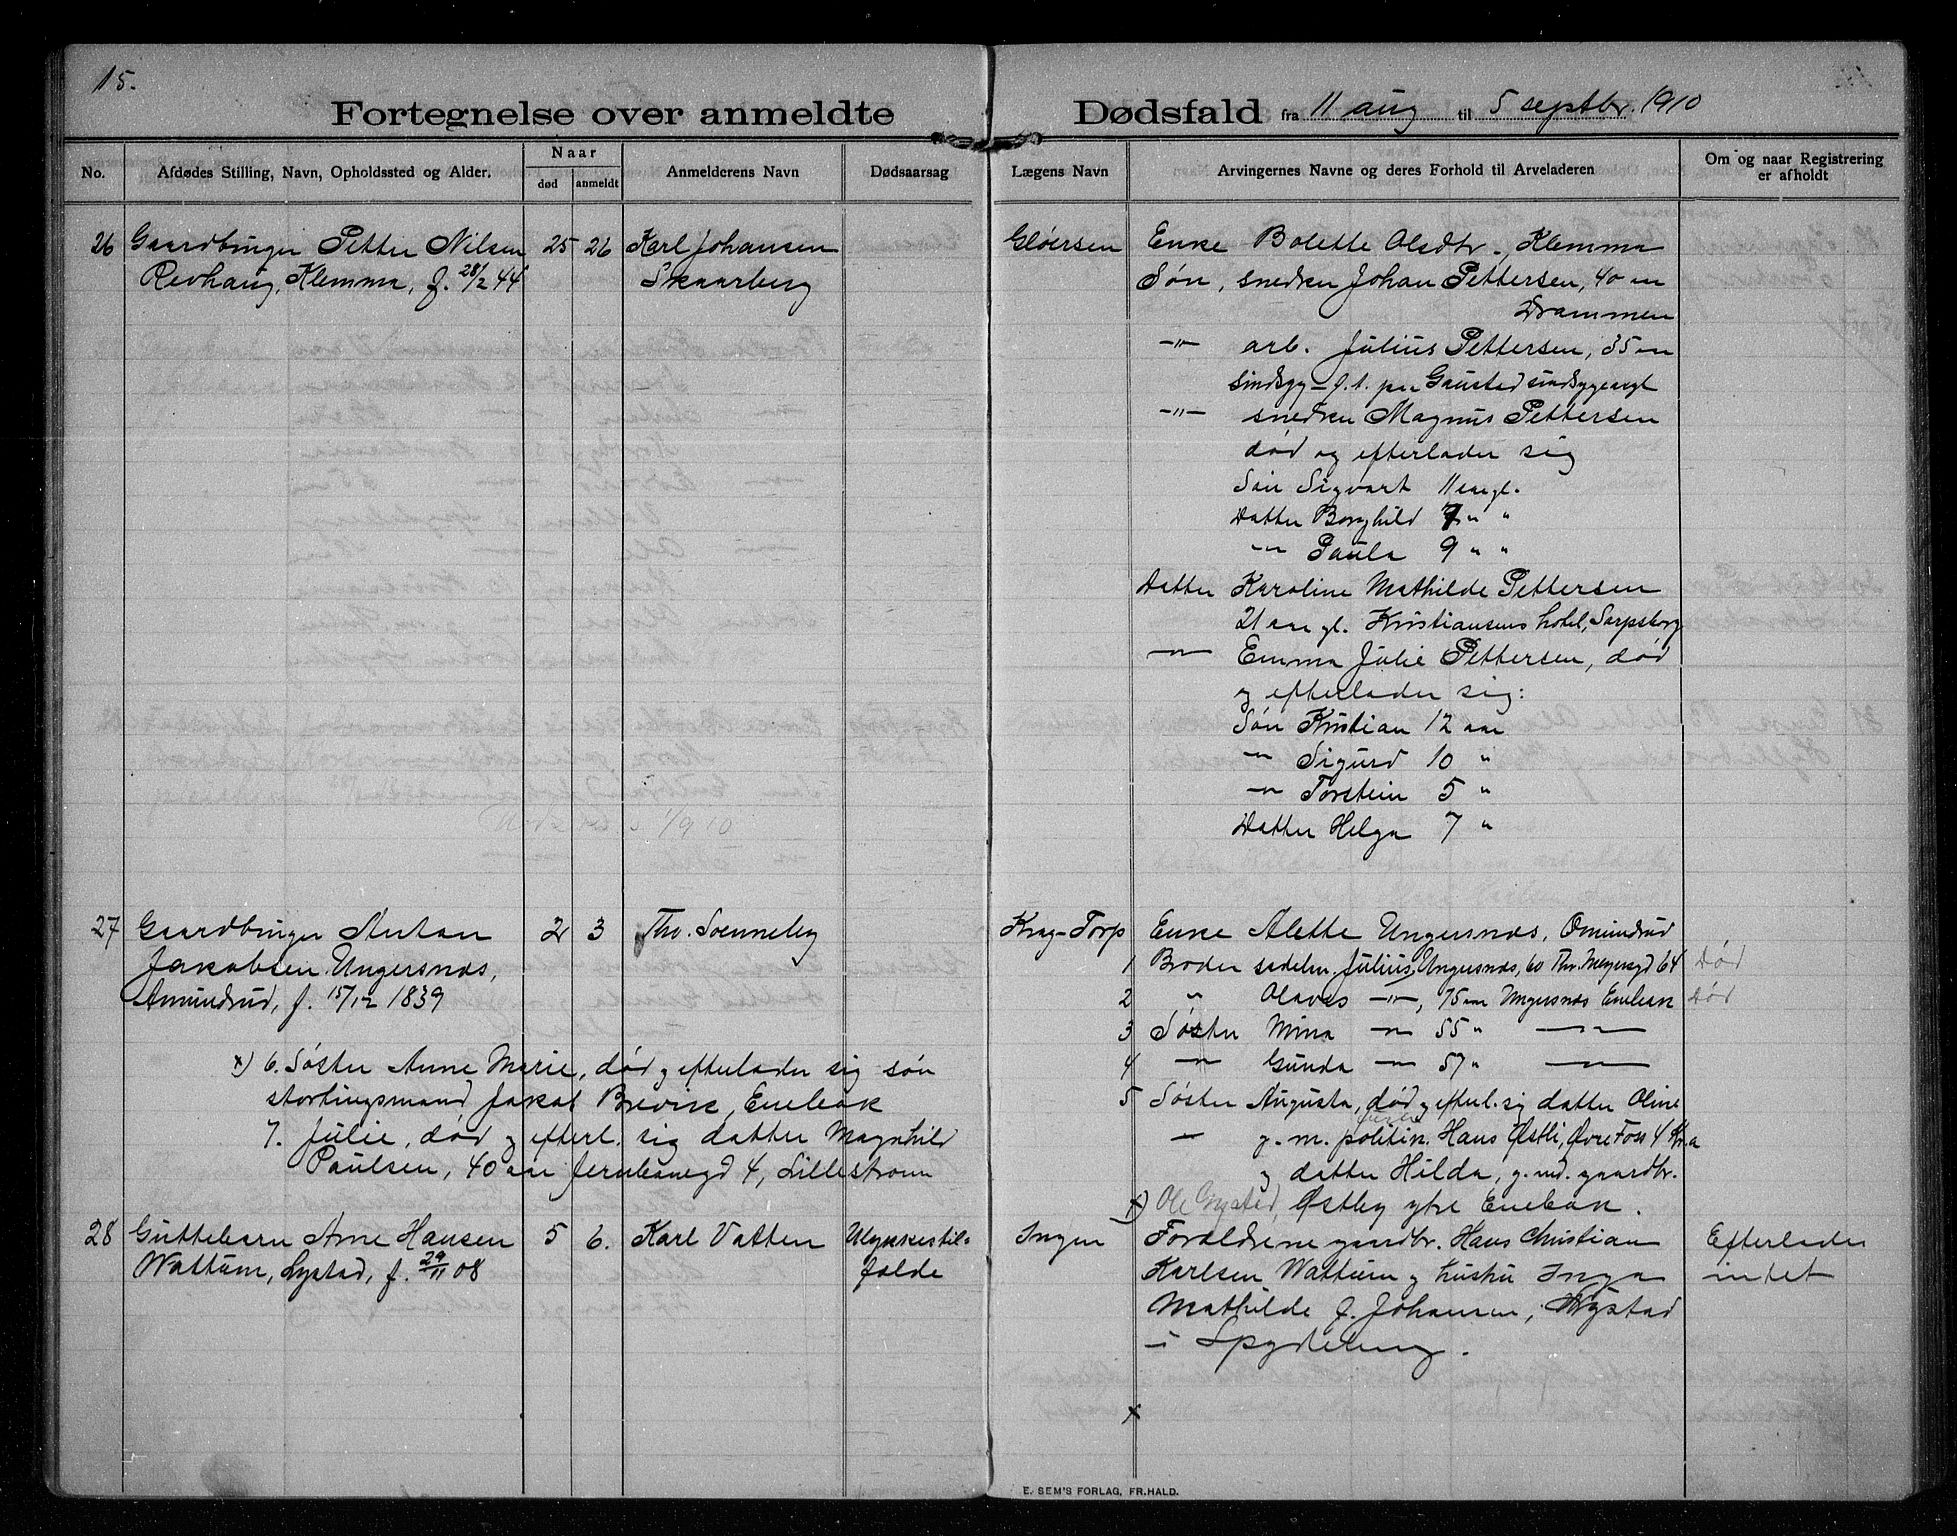 15.
Fortegnelse over anmeldte Dødsfald fra 11 aug til 5 septbr. 1910
No.
Afdødes Stilling, Navn, Opholdssted og Alder.
Naar
død
anmeldt
Anmelderens Navn
Dødsaarsag
Lægens Navn
Arvingernes Navne og deres Forhold til Arveladeren
Om og naar Registrering
er afholdt
26 Gaardbruger Petter Nilsen
Revhaug, Klemma, f. 28/2 44
25 26 Karl Johansen
Skaarberg
Gløersen
Enke Bolette Olsdtr., Klemma
Søn, snedker Johan Pettersen, 40 aar
Drammen
-"- arb. Julius Pettersen, 35 aar
sindsyg - f. t. paa Gaustad sindsygeasyl
-"- snedker Magnus Pettersen
død og efterlader sig
Søn Sigvart 11 aar gl.
Datter Borghild 7 " "
-"- Paula 9 " "
Datter Karoline Mathilde Pettersen
21 aar gl. Kristiansens hotel, Sarpsborg
-"- Emma Julie Pettersen, død
og efterlader sig:
Søn Kristian 12 aar
-"- Sigurd 10 "
-"- Torstein 5 "
Datter Helga 7 "
/9 10
27 Gaardbruger Anton
Jakobsen Ungersnæs,
Amundrud, f. 15/12 1839
2 3 Th. Sønneby
Krag-Torp
Enke Alette Ungersnæs, Omundrud
1 Broder sadelm. Julius Ungersnæs, 60 Th. Meyersgd 64 Død
2 " Olaves -"-, 75 aar Ungersnæs Enebak Død
3 Søster Mina -"- 55 " -"-
4 -"- Gunda -"- 57 " -"-
5 Søster Augusta, død og efterl. sig datter Oline
-"- g. m. politin. Hans Østli, Øvre Foss 4 Kr.a
og datter Hilda, g. md. gaardbr.
Ole Grystad, Østby ytre Enebak.
x) 6. Søster Anne Marie, død og efterlader sig søn
stortingsmand Jakob Brevik, Enebak
7. Julie, død og efterl. sig datter Magnhild
Paulsen, 40 aar Jernbanegd 4, Lillestrøm
28 Guttebarn Arne Hansen
Wattum, Lystad, f. 29/11 08
5 6. Karl Vatten
Ulykkestil-
fælde
Ingen
Forældrene gaardbr. Hans Christian
Karlsen Wattum og hustru Inga
Mathilde f. Johansen, Nystad
i Spydeberg.
Efterlader
intet
x
E. SEM'S FORLAG, FR.HALD.